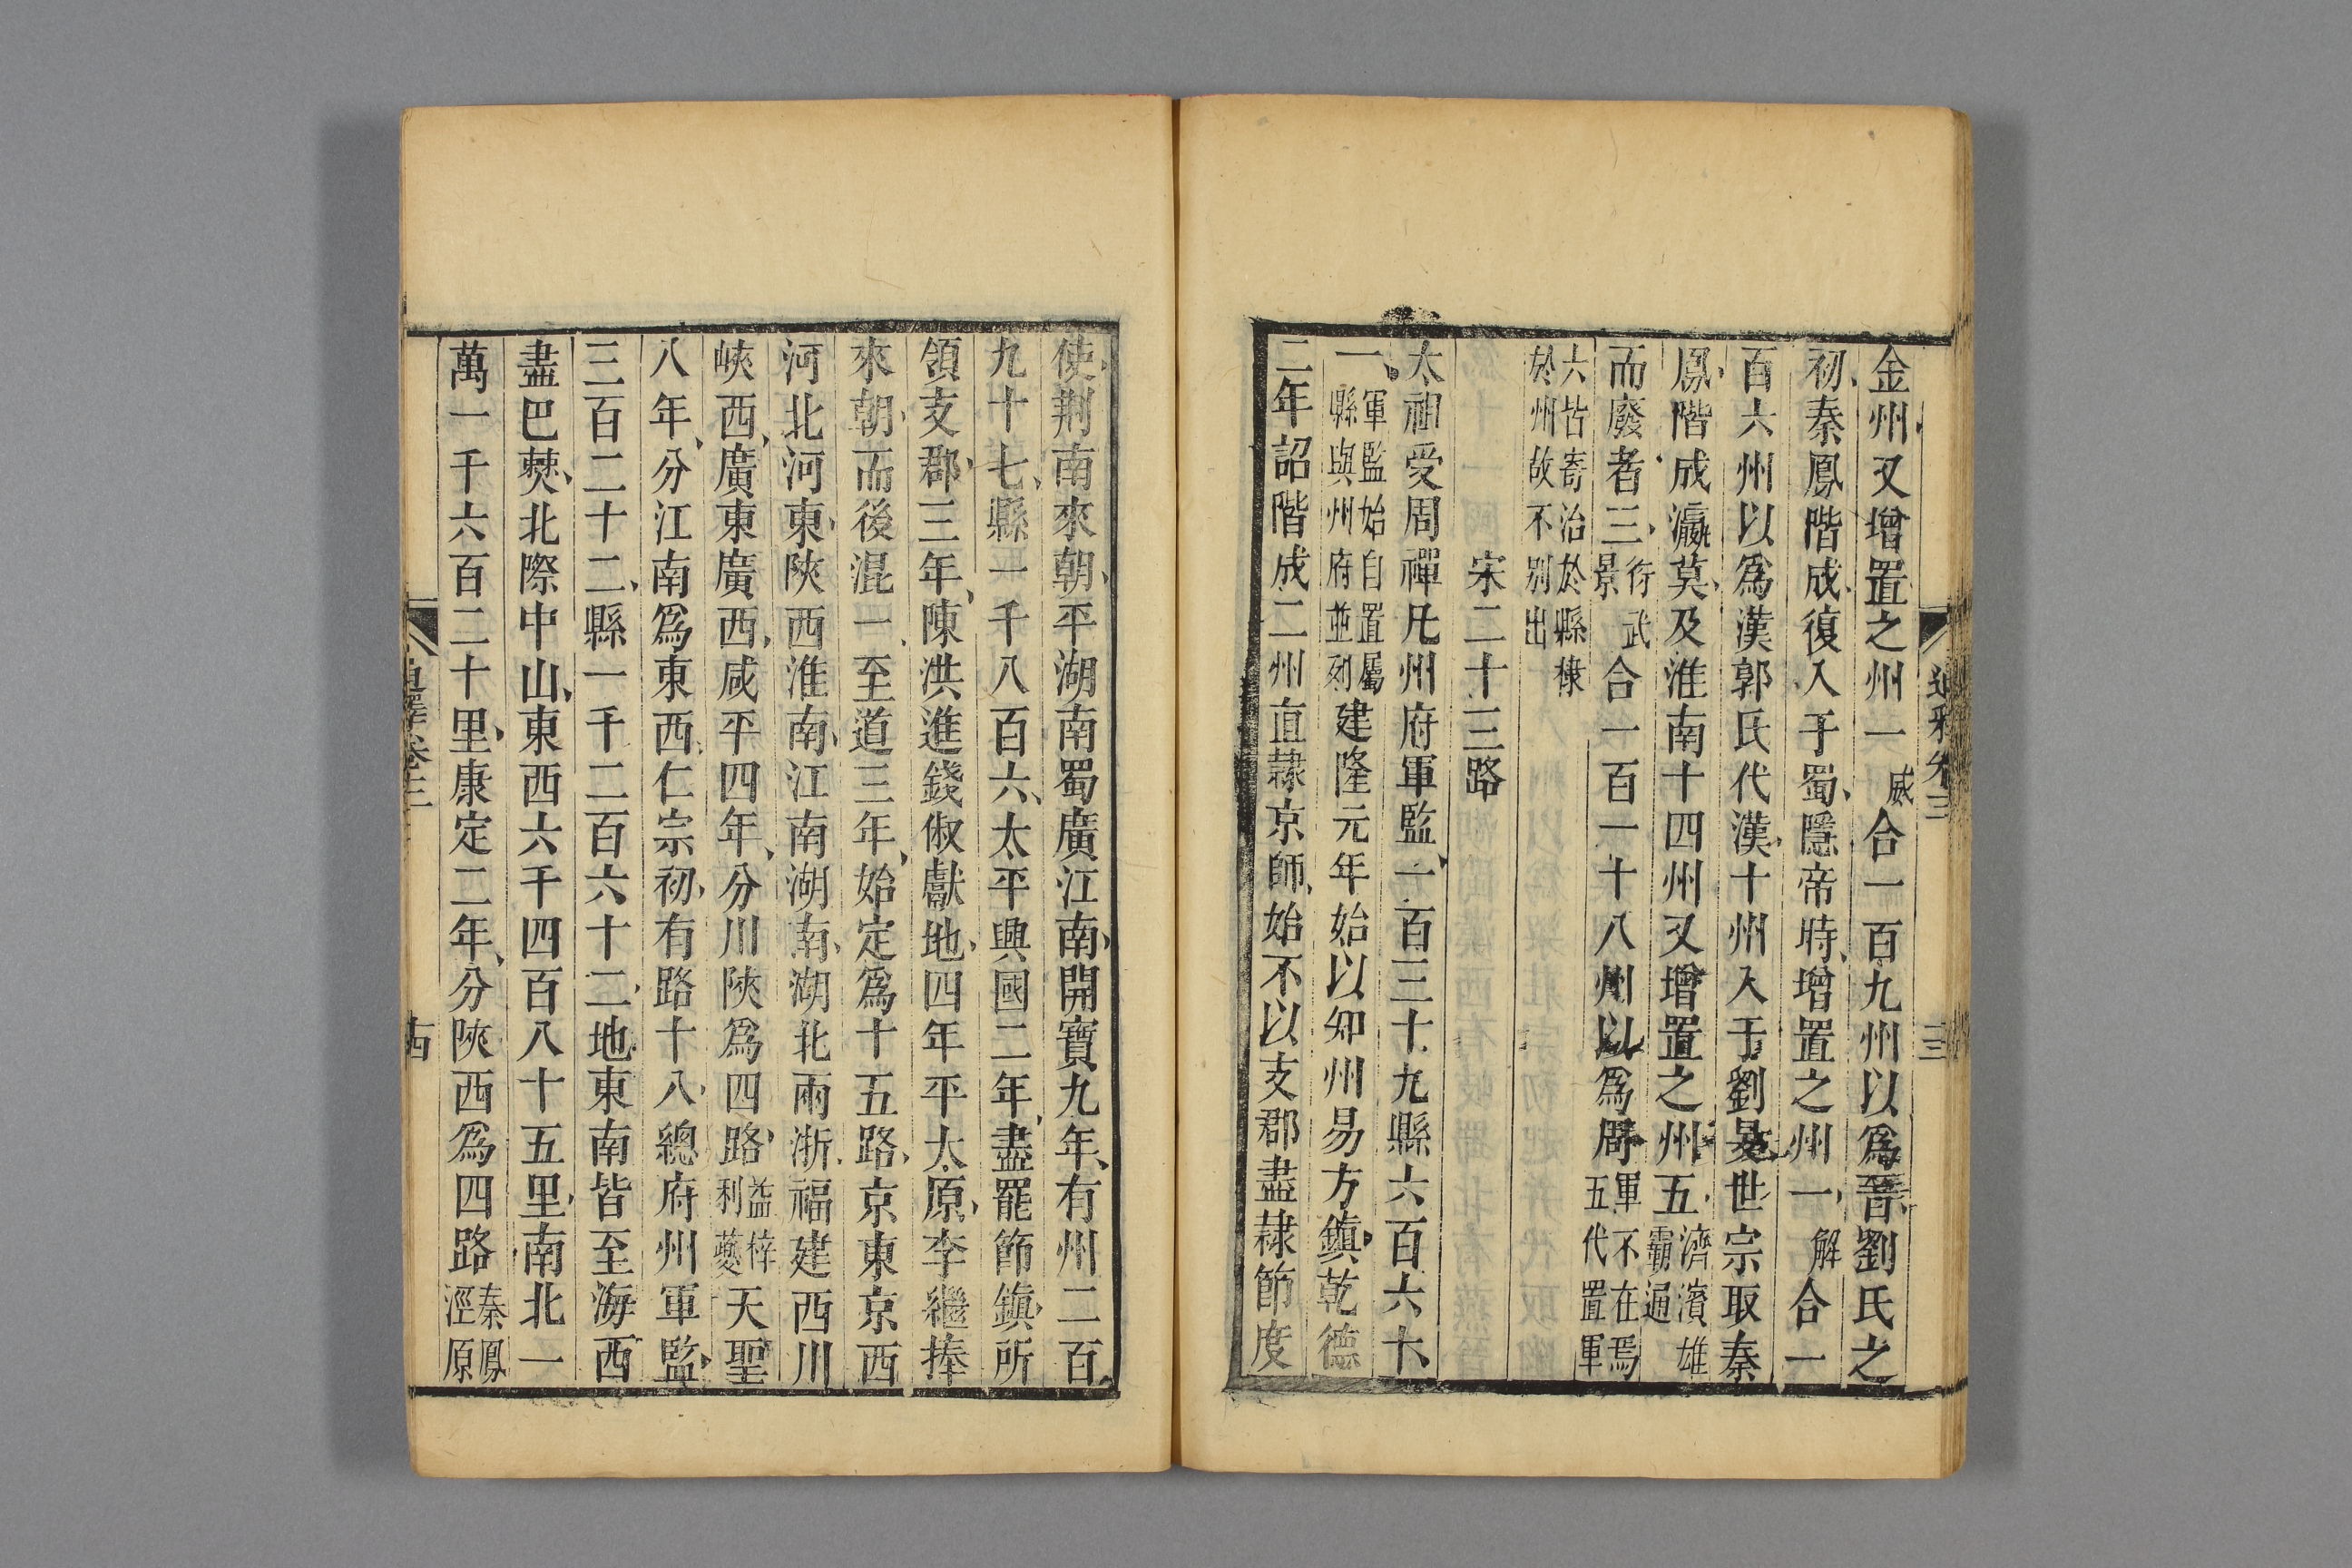 金州又增置之州一威合一百九州以爲晉劉氏之
初秦鳳階成復入于蜀隱帝時增置之州一解合一
百六州以爲漢郭氏代漢十州入于劉旻世宗取秦
鳳階成瀛莫及淮南十四州又增置之州五濟濱雄霸通
而廢者三衍武景合一百一十八州以爲周軍不在焉五代置軍
六皆寄治於縣棣於州故不別出
宋二十三路
太祖受周禪凡州府軍監一百三十九縣六百六十
一軍監始自置屬縣與州府並列建隆元年始以知州易方鎮乾德
二年詔階成二州直隸京師始不以支郡盡隸節度
使荆南來朝平湖南蜀廣江南開寶九年有州二百
九十七縣一千八百六太平興國二年盡罷節鎮所
領支郡三年陳洪進錢俶獻地四年平太原李繼捧
來朝而後混一至道三年始定爲十五路京東京西
河北河東陝西淮南江南湖南湖北兩浙福建西川
峽西廣東廣西咸平四年分川陝爲四路益梓利夔天聖
八年分江南爲東西仁宗初有路十八總府州軍監
三百二十二縣一千二百六十二地東南皆至海西
盡巴僰北際中山東西六千四百八十五里南北一
萬一千六百二十里康定二年分陝西爲四路秦鳳涇原
通釋卷三
古